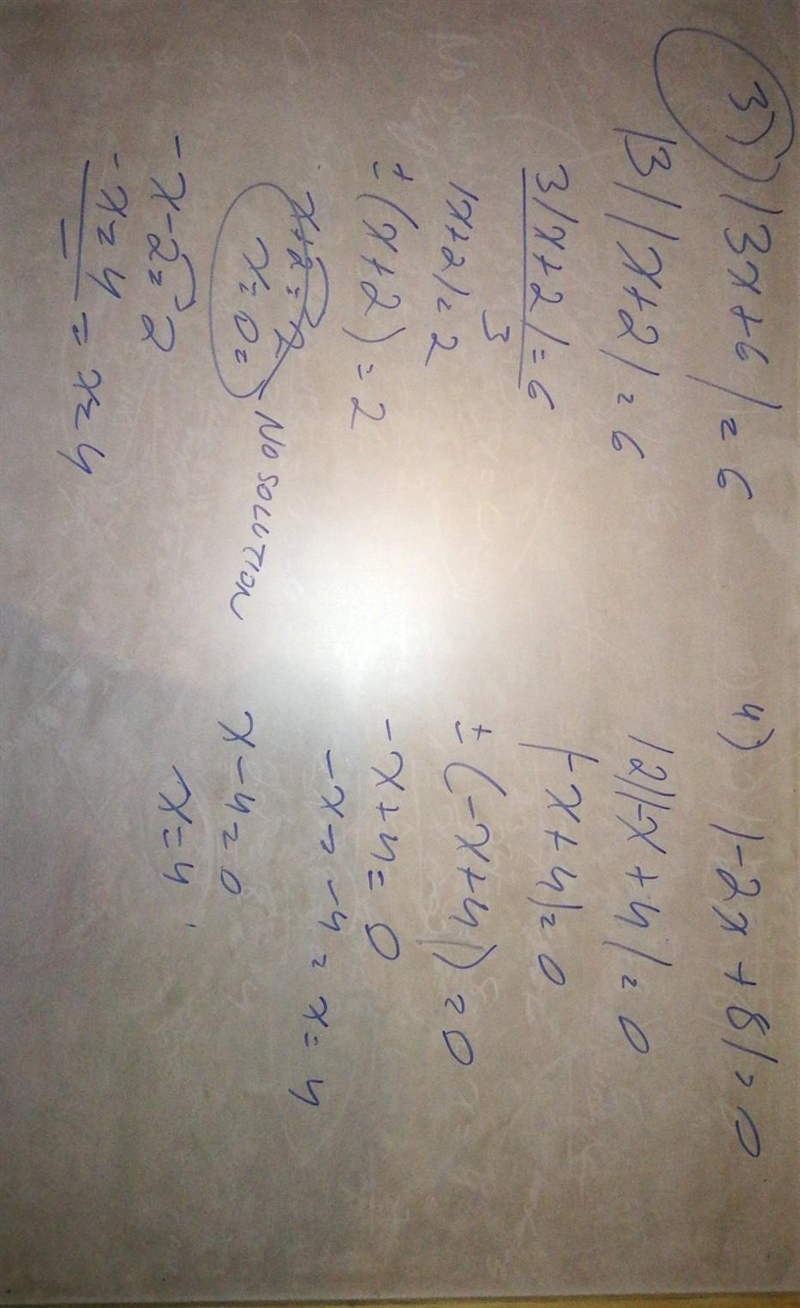 3) |3x+6|=6
|3||x+2|=6
3|x+2|=6
3
|x+2|=2
±(x+2)=2
x+2=2
x=0= No SOLUTION
-x-2=2
-x=4=x=4
-
4) |-2x+8|=0
|2||-x+4|=0
|-x+4|=0
±(-x+4)=0
-x+4=0
-x=-4=x=4
x-4=0
x=4